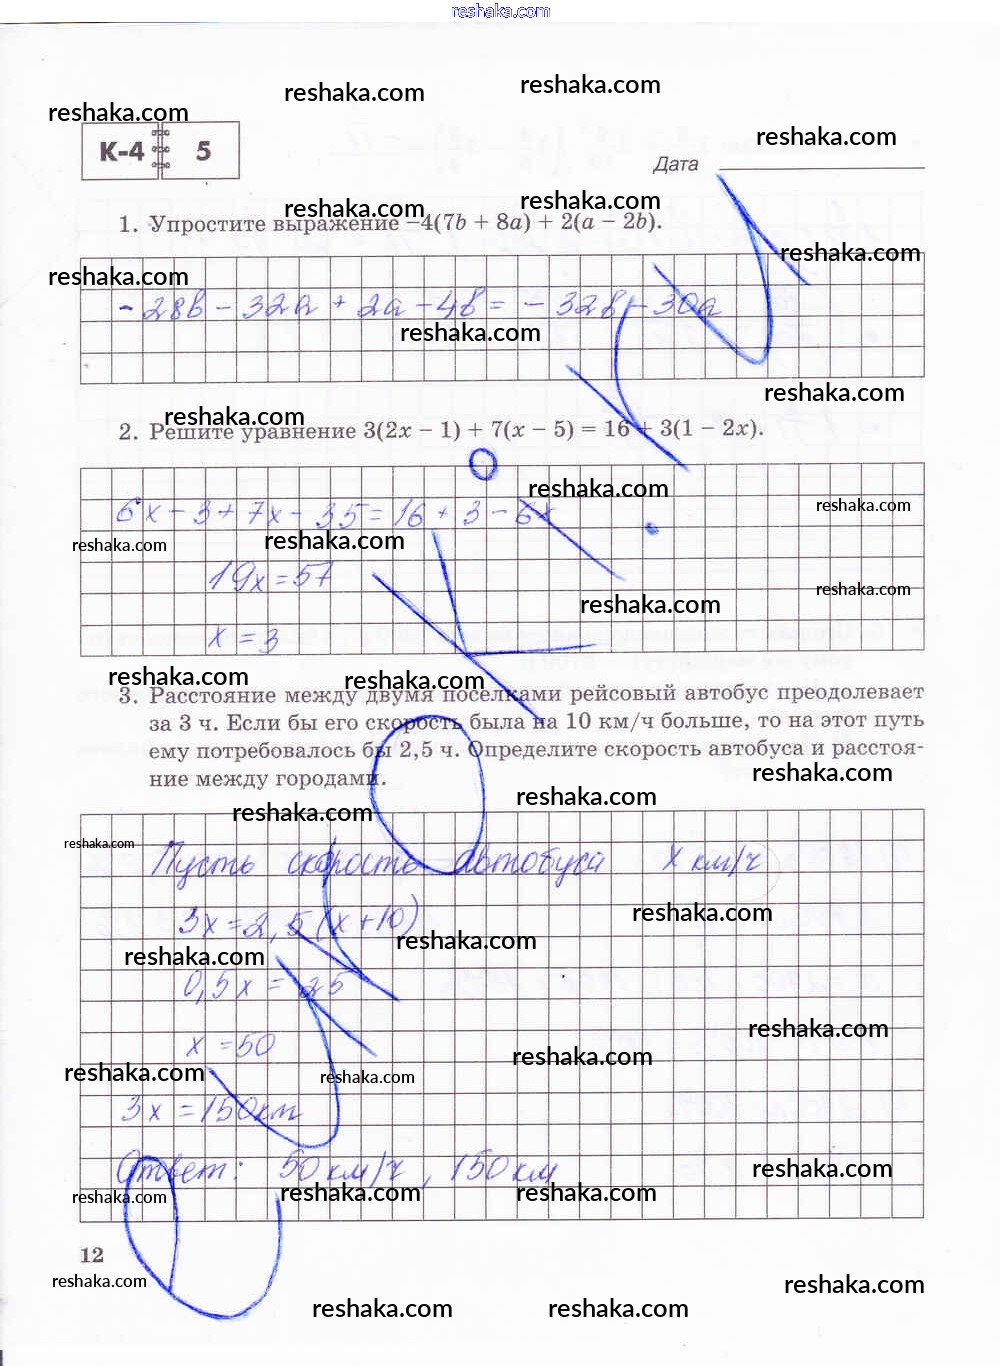 reshaka.com
reshaka.com
reshaka.com
reshaka.com
К-4 5
reshaka.com
Дата
reshaka.com
reshaka.com
1. Упростите выражение −4(7b + 8a) + 2(a − 2b).
reshaka.com
reshaka.com
- 28b - 32a + 2a - 4b = - 32b - 30a
reshaka.com
reshaka.com
reshaka.com
2. Решите уравнение 3(2x − 1) + 7(x − 5) = 16 + 3(1 − 2x).
reshaka.com
6x - 3 + 7x - 35 = 16 + 3 - 6x
reshaka.com
reshaka.com
reshaka.com
19x = 57
reshaka.com
reshaka.com
x = 3
reshaka.com
reshaka.com
3. Расстояние между двумя посёлками рейсовый автобус преодолевает
за 3 ч. Если бы его скорость была на 10 км/ч больше, то на этот путь
ему потребовалось бы 2,5 ч. Определите скорость автобуса и расстоя-
ние между городами.
reshaka.com
reshaka.com
reshaka.com
reshaka.com
Пусть скорость автобуса x км/ч
3x = 2,5(x+10)
reshaka.com
reshaka.com
reshaka.com
0,5x = 25
reshaka.com
x = 50
reshaka.com
reshaka.com
reshaka.com
3x = 150км
Ответ: 50 км/ч, 150 км
reshaka.com
reshaka.com
reshaka.com
reshaka.com
12
reshaka.com
reshaka.com
reshaka.com
reshaka.com